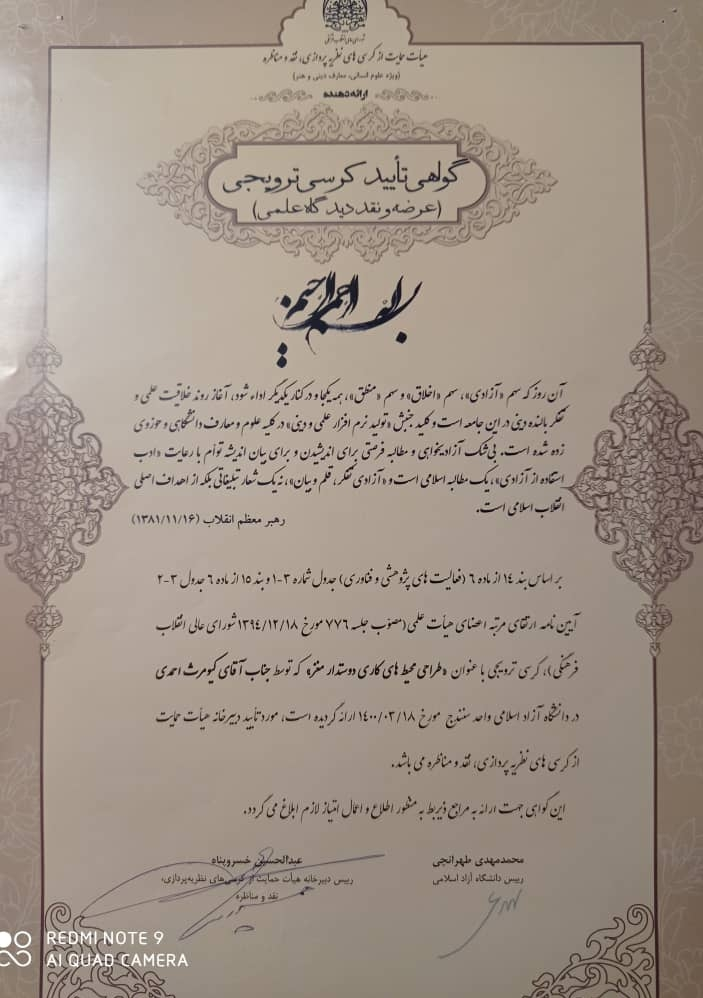 شورای عالی انقلاب فرهنگی
هیأت حمایت از کرسی های نظریه پردازی، نقد و مناظره
(ویژه علوم انسانی، معارف دینی و هنر)
ارائه دهنده
گواهی تأیید کرسی ترویجی
(عرضه و نقد دیدگاه علمی)
بسم الله الرحمن الرحیم
آن روز که سهم «آزادی»، سهم «اخلاق» و سهم «منطق»، همه یکجا و در کنار یکدیگر اداء شود، آغاز روند خلاقیت علمی و
تفکر بالنده دینی در این جامعه است و کلید جنبش «تولید نرم افزار علمی و دینی» در کلیه علوم و معارف دانشگاهی و حوزوی
زده شده است. بی شک آزادیخواهی و مطالبه فرصتی برای اندیشیدن و برای بیان اندیشه توأم با رعایت «ادب
استفاده از آزادی»، یک مطالبه اسلامی است و «آزادی تفکر، قلم و بیان»، نه یک شعار تبلیغاتی بلکه از اهداف اصلی
انقلاب اسلامی است.
رهبر معظم انقلاب (۱۳۸۱/۱۱/۱۶)
بر اساس بند ۱۴ از ماده ۶ (فعالیت های پژوهشی و فناوری) جدول شماره ۳-۱ و بند ۱۵ از ماده ۶ جدول ۳-۲
آیین نامه ارتقای مرتبه اعضای هیأت علمی (مصوب جلسه ۷۷۶ مورخ ۱۳۹۴/۱۲/۱۸ شورای عالی انقلاب
فرهنگی)، کرسی ترویجی با عنوان «طراحی محیط های کاری دوستدار مغز» که توسط جناب آقای کیومرث احمدی
در دانشگاه آزاد اسلامی واحد سنندج مورخ ۱۴۰۰/۰۳/۱۸ ارائه گردیده است، مورد تأیید دبیرخانه هیأت حمایت
از کرسی های نظریه پردازی، نقد و مناظره می باشد.
این گواهی جهت ارائه به مراجع ذیربط به منظور اطلاع و اعمال امتیاز لازم ابلاغ می گردد.
محمدمهدی طهرانچی
رییس دانشگاه آزاد اسلامی
عبدالحسین خسروپناه
رییس دبیرخانه هیأت حمایت از کرسی های نظریه پردازی،
نقد و مناظره
REDMI NOTE 9
AI QUAD CAMERA